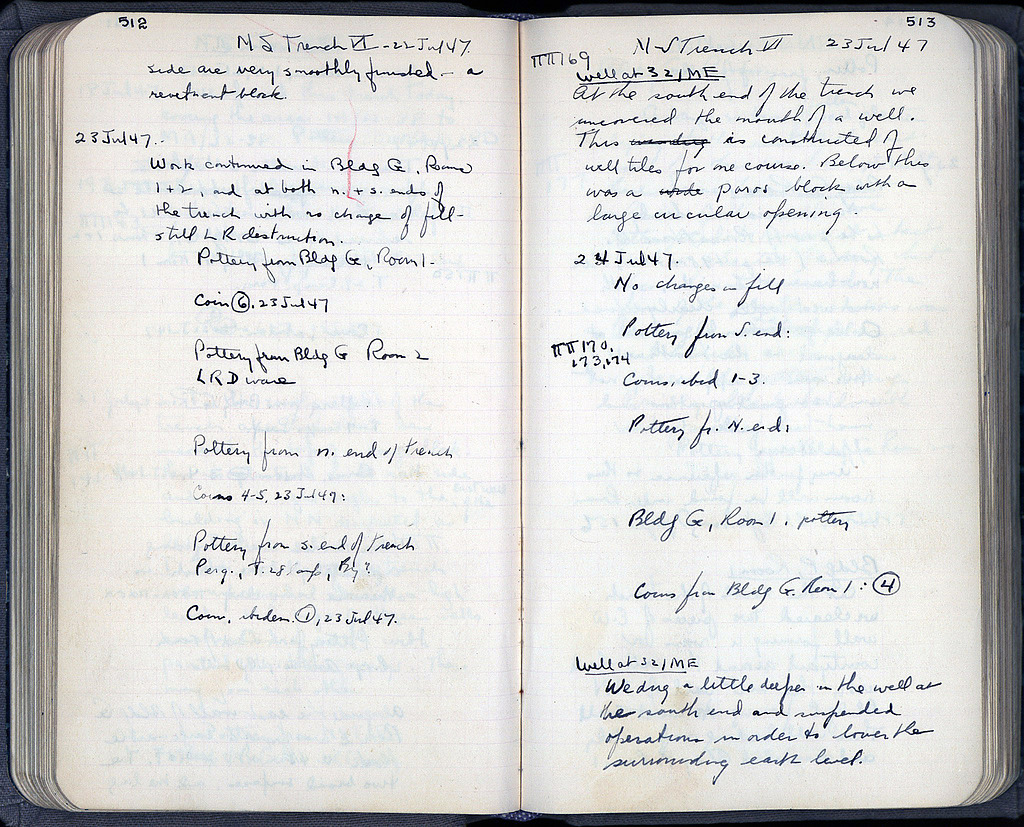 512
MS Trench VI - 22 Jul 47.
side are very smoothly finished - a
revetment block.
23 Jul 47.
Work continued in Bldg G, Rooms
1+2, and at both n. + s. ends of
the trench with no change of fill -
still LR destruction.
Pottery from Bldg G, Room 1 -
Coin 6, 23 Jul 47
Pottery from Bldg G Room 2
LRD ware
Pottery from n. end of trench
Coins 4-5, 23 Jul 47:
Pottery from s. end of trench
Perg., T. Sig, By?
Coin, ibidem. 1, 23 Jul 47.
513
M-S Trench VI 23 Jul 47
ΠΠ 169
Well at 32/ME
At the south end of the trench we
uncovered the mouth of a well.
This is constructed of
well tiles for one course. Below this
was a poros block with a
large circular opening.
24 Jul 47.
No changes in fill
Pottery from S. end:
ΠΠ 170,
173, 174
Coins, ibid 1-3.
Pottery fr. N. end:
Bldg G, Room 1, pottery
Coins from Bldg G. Room 1: 4
Well at 32/ME
We dug a little deeper in the well at
the south end and suspended
operations in order to lower the
surrounding earth level.